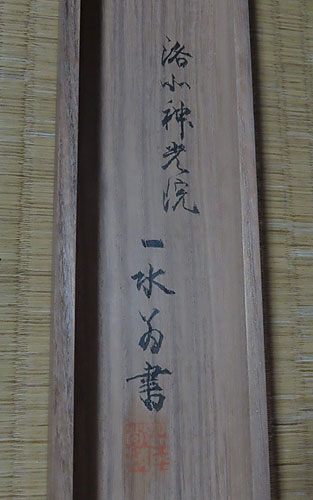 洛北神光院
一水為書